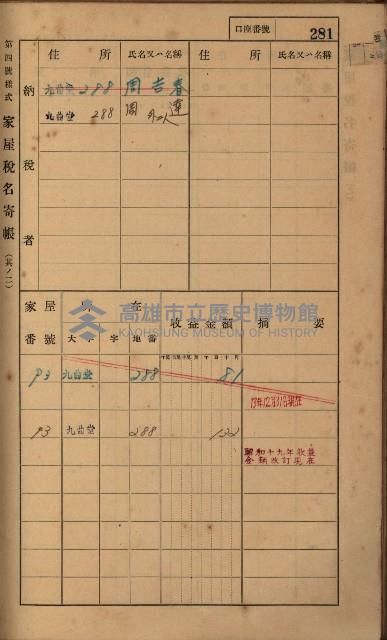 口座番號 281
第四號樣式 家屋稅名寄帳 (其ノ二)
納稅者
住所 氏名又ハ名稱 住所 氏名又ハ名稱
九曲堂 298 周吉春
九曲堂 288 周 蓮 外二人
家屋番號 所在 收益金額 摘要
大字 字 地番
93 九曲堂 288 81
13年12月31日現在
93 九曲堂 288 132
昭和十九年收益
金額改訂現在
高雄市立歷史博物館
KAOHSIUNG MUSEUM OF HISTORY